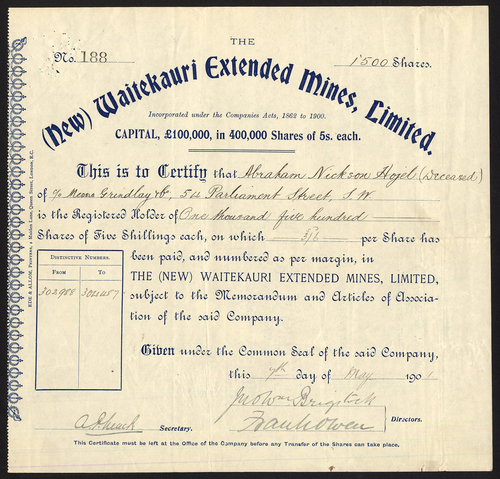 THE
No. 188
1500 Shares.
(New) Waitekauri Extended Mines, Limited.
Incorporated under the Companies Acts, 1862 to 1900.
CAPITAL, £100,000, in 400,000 Shares of 5s. each.
This is to Certify that Abraham Nickson Hojel (Deceased)
of c/o Messrs Grindlay & Co, 54 Parliament Street, S.W.
is the Registered Holder of One thousand five hundred
Shares of Five Shillings each, on which per Share has
been paid, and numbered as per margin, in
THE (NEW) WAITEKAURI EXTENDED MINES, LIMITED,
subject to the Memorandum and Articles of Associa-
tion of the said Company.
DISTINCTIVE NUMBERS.
FROM TO
302988 304487
Given under the Common Seal of the said Company,
this 7th day of May 1901
Frank Owen
Directors.
Secretary.
This Certificate must be left at the Office of the Company before any Transfer of the Shares can take place.
EDE & ALLOM, PRINTERS, Queen Street, London, E.C.